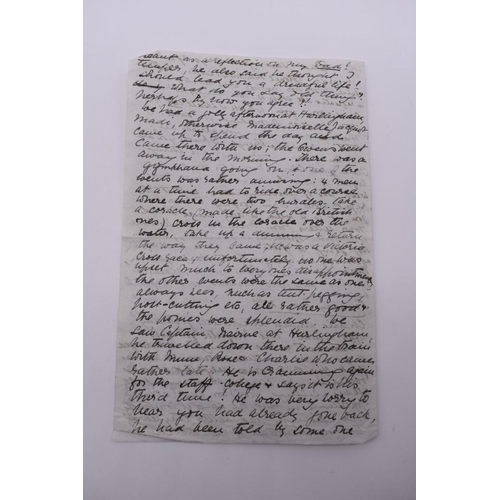 meant as a reflection on my bad!
temper, he also said he thought I
should lead you a dreadful life!
what do you say did they
perhaps by now you agree!!
We had a jolly afternoon at Hurlingham
Madi, otherwise Mademoiselle
came up to spend the day and
came there with us; the Owens went
away in the morning. There was a
gymkhana going on & one of the
events was rather amusing: 4 men
at a time had to ride over a course
where there were two hurdles, take
a coracle, made like the old British
ones, cross in the coracle over the
water, take up a dummy & return
the way they came, it was a Victoria
Cross race, unfortunately no one was
upset much to everyones disappointment
the other events were the same as one
always sees, such as tent pegging,
post-cutting etc, all rather good &
the ponies were splendid. We
saw Captain Nairne at Hurlingham
he travelled down there in the train
with Mme, Rose & Charlie who came
rather late. He is cramming again
for the staff-college & says it is his
third time! He was very sorry to
hear you had already gone back
he had been told by some one